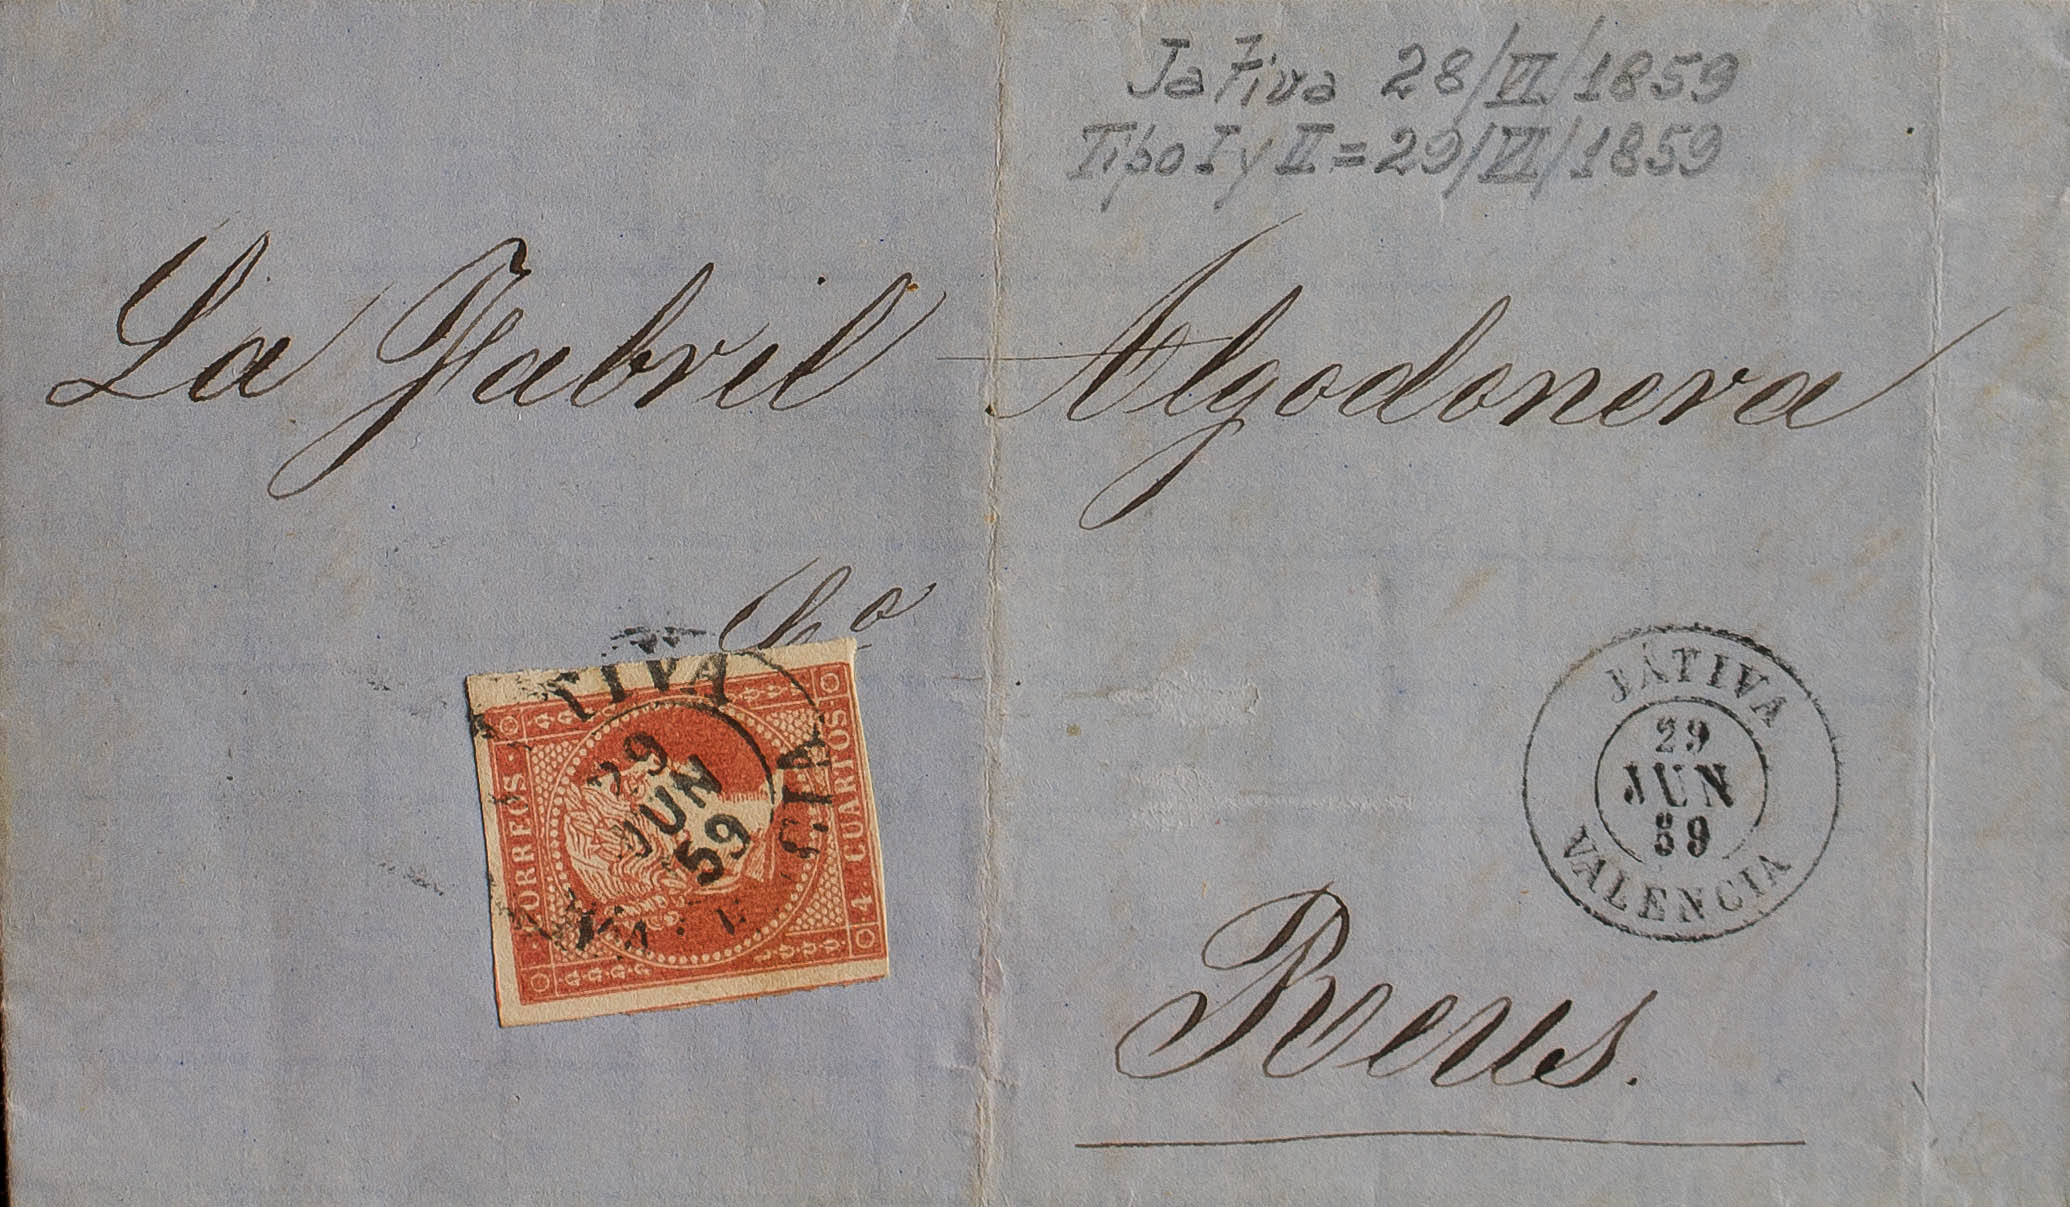 Jativa 28/VI/1859
Tipo I y II = 29/VI/1859
La Fabril Algodonera
TIVA
29
JUN
59
CIA
CORREOS
4 CUARTOS
JÁTIVA
29
JUN
59
VALENCIA
Reus.